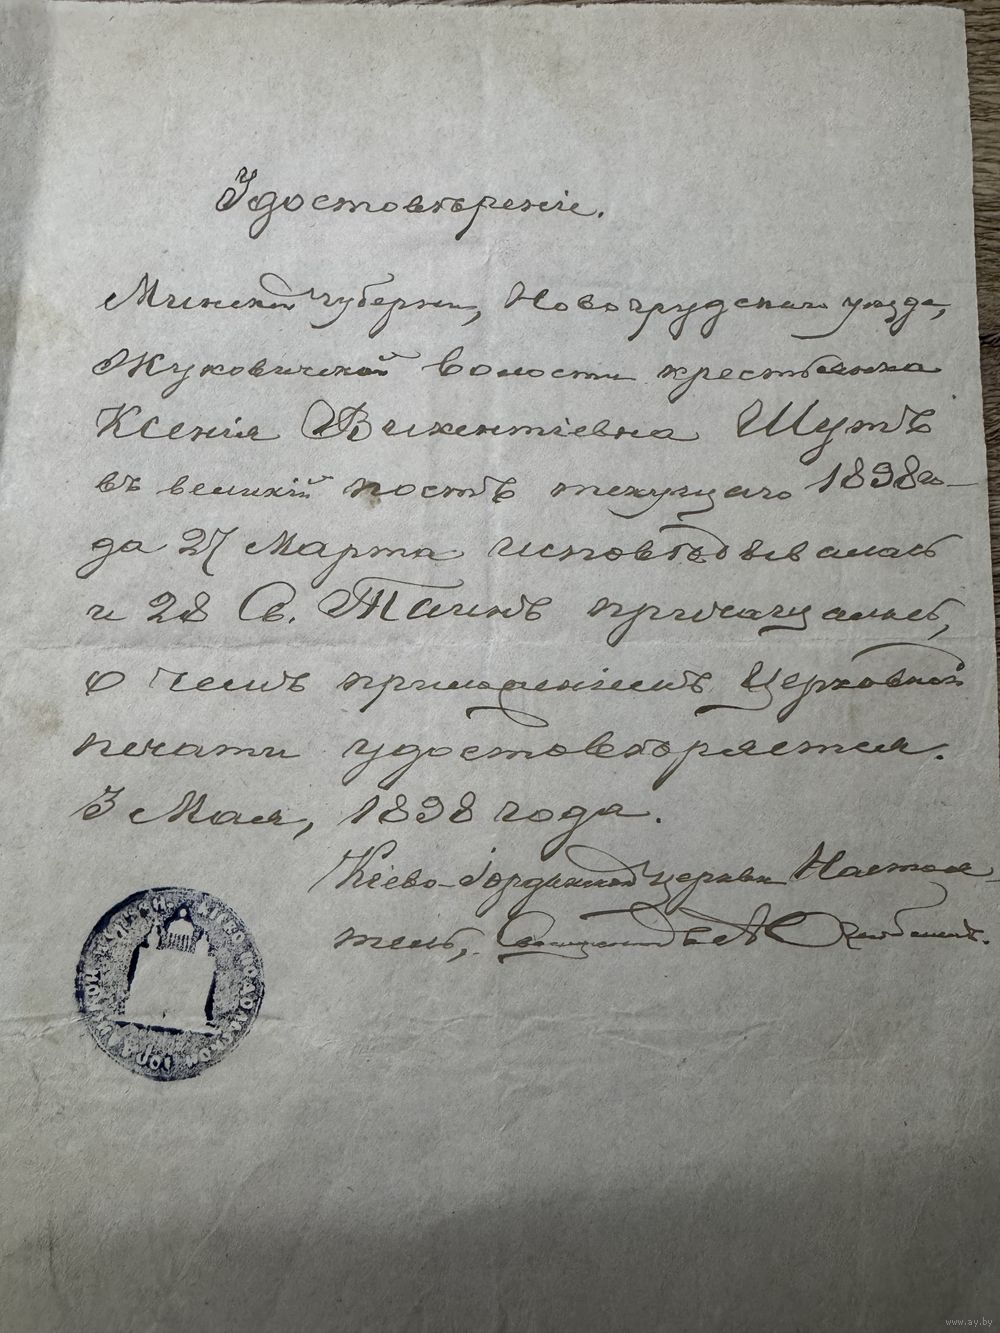 Удостовѣреніе.
Минской губерніи, Новогрудскаго уѣзда,
Жуковичской волости крестьянка
Ксенія Викентіевна Шутъ
въ великій постъ текущаго 1898 го-
да 27 Марта исповѣдывалась
и 28 Св. Таинъ пріобщалась,
о чемъ приложеніемъ Церковной
печати удостовѣряется.
3 Мая, 1898 года.
Кіево-Іорданской церкви Настоя-
тель, Священникъ
www.ay.by